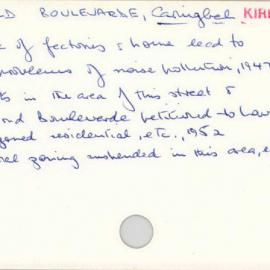 LD BOULEVARDE, Caringbah KIR
of factories & home lead to
problems of noise pollution, 1947
in the area of this street &
ond Boulevarde petitioned to have
zoned residential, etc, 1952
zoning suspended in this area, e